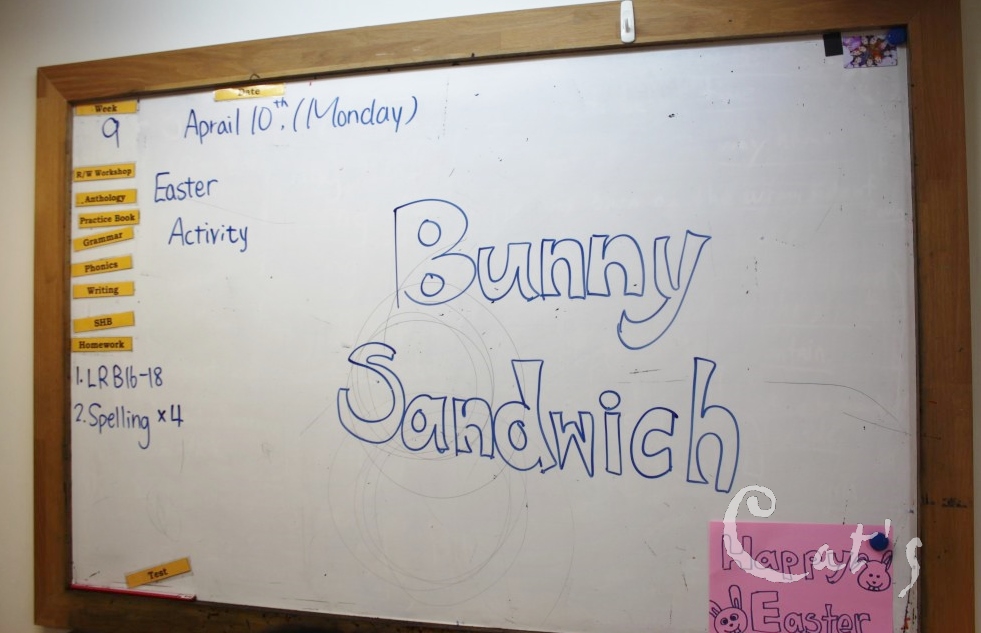 Date
Week
9
Aprail 10th. (Monday)
R/W Workshop
Easter
Anthology
Practice Book
Activity
Grammar
Phonics
Writing
SHB
Homework
1. LRB16-18
2. Spelling ×4
Bunny
Sandwich
Test
Happy
Easter
Cat's